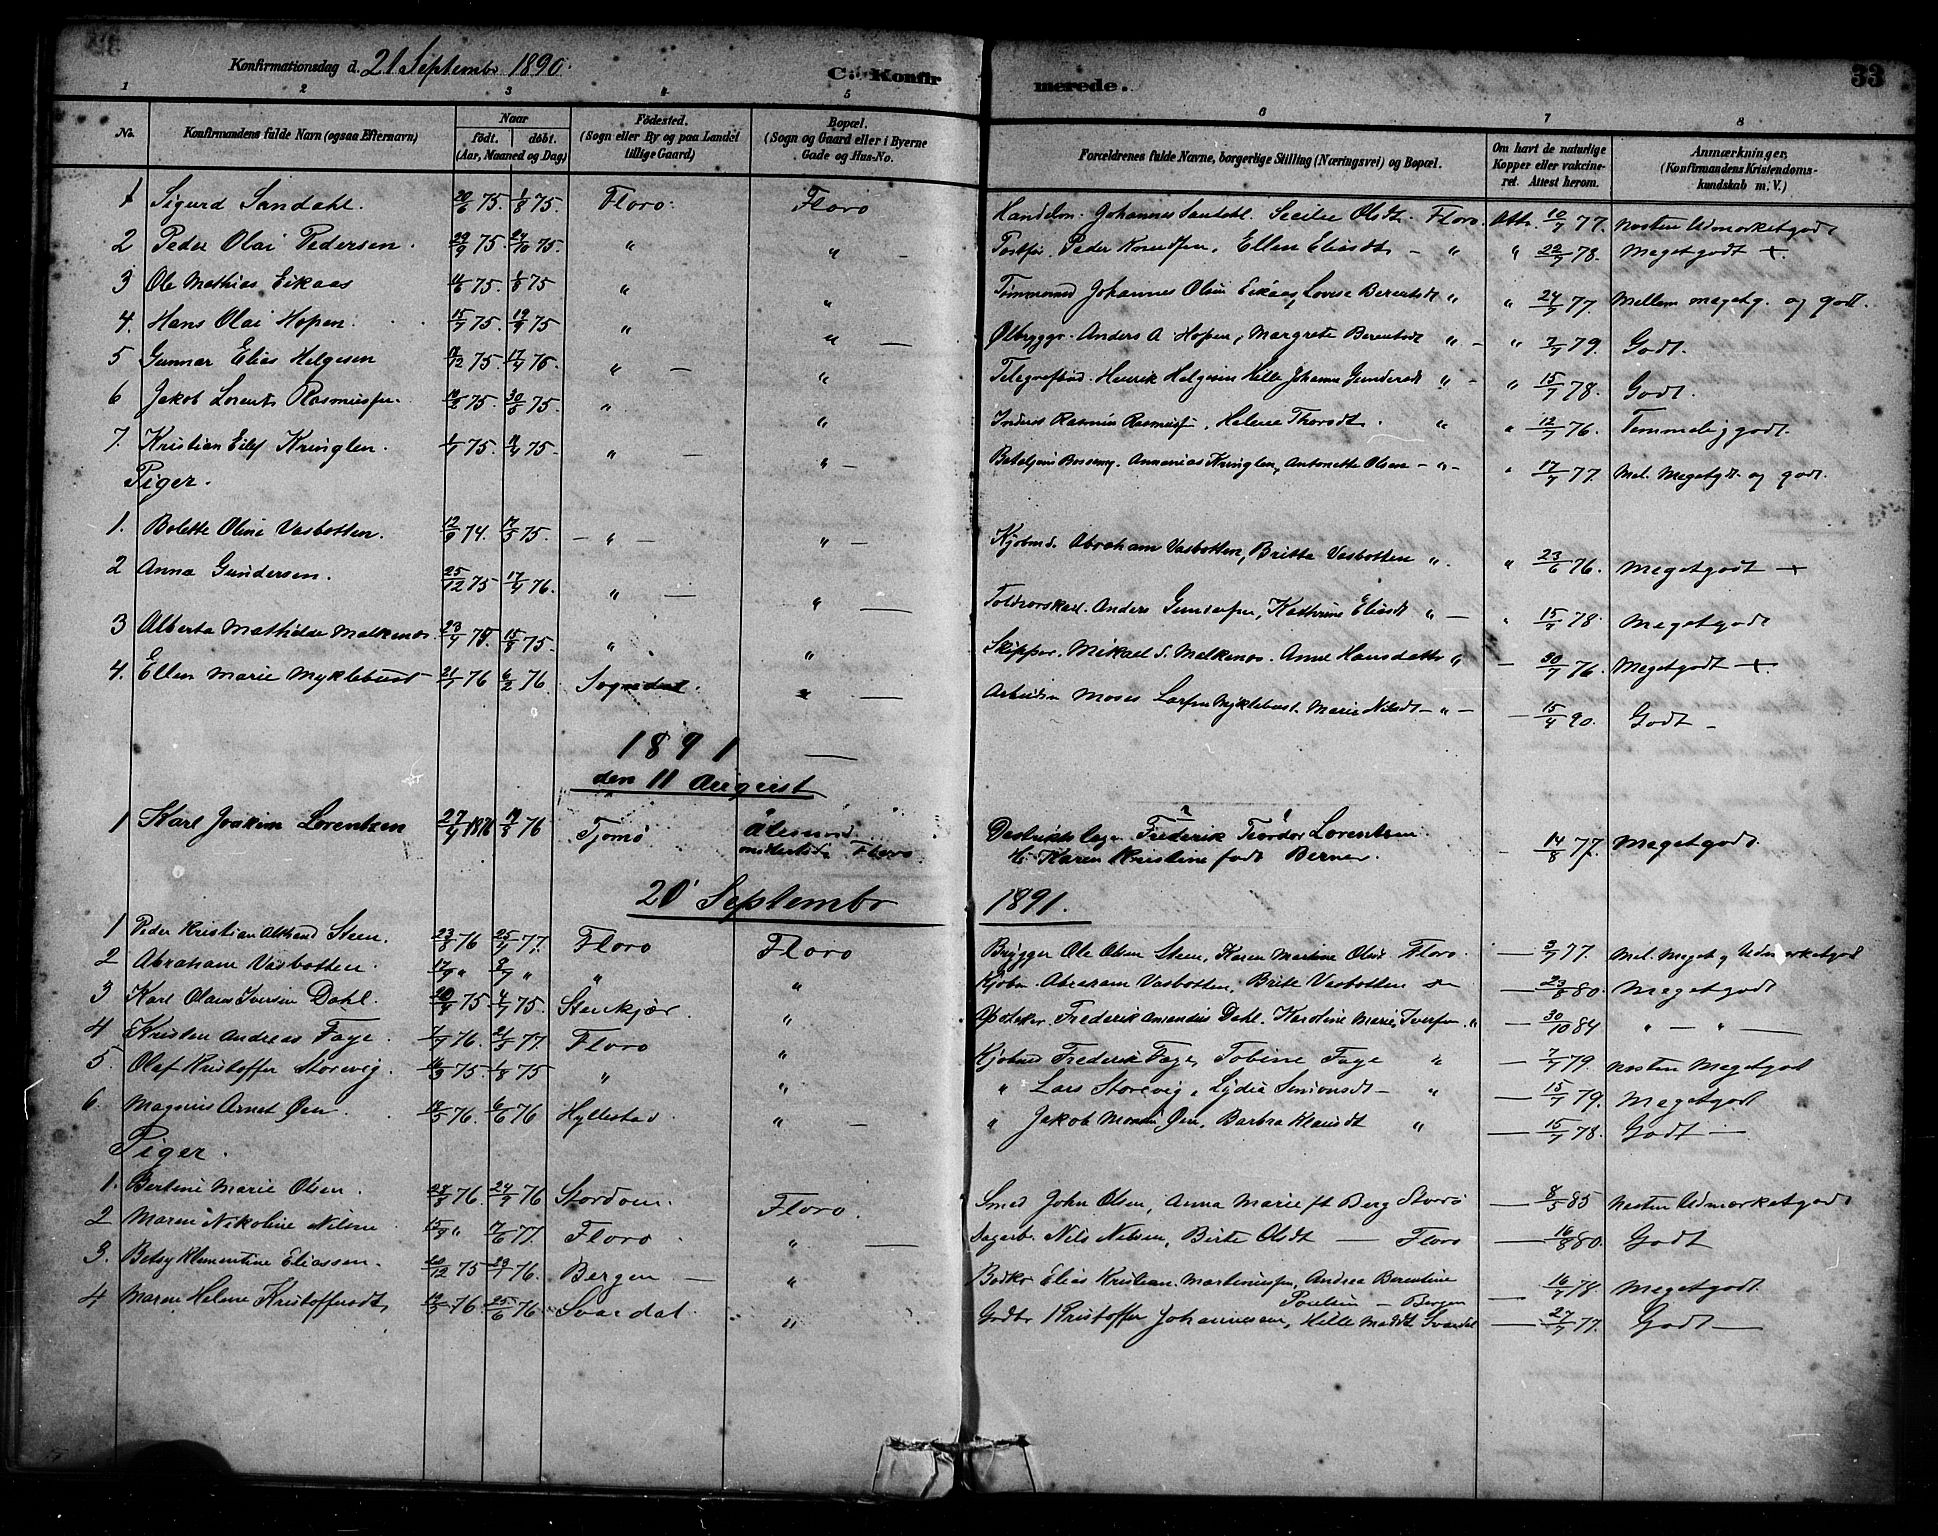 Konfirmationsdag d. 21 September 1890. C. Konfirmerede. 33
1 2 3 4 5 6 7 8
No. Konfirmandens fulde Navn (ogsaa Efternavn) Naar født. døbt. (Aar, Maaned og Dag) Fødested. (Sogn eller By og paa Landet tillige Gaard) Bopæl. (Sogn og Gaard eller i Byerne Gade og Hus-No. Forældrenes fulde Navne, borgerlige Stilling (Næringsvei) og Bopæl. Om havt de naturlige Kopper eller vakcineret. Attest herom. Anmærkninger, (Konfirmandens Kristendomskundskab m. V.)
1 Sigurd Sandahl. 20/6 75. 1/8 75. Floro. Floro Handelsm. Johannes Sandahl. Secilie Olsdt. Floro. Att. 10/7 77. Nesten Udmærketgodt
2 Peder Olai Pedersen. 22/9 75. 24/10 75. " " Peder Knudsen, Ellen Eliasdt - " " 22/7 78. Megetgodt +.
3 Ole Mathias Eikaas 75. 1/8 75 " " Tømmermd Johannes Olsen Eikaas, Lovise Berentsdt " " 24/7 77. Mellem megetg. og godt.
4. Hans Olai Hopen. 15/7 75. 19/9 75 " " Ølbrygger. Anders A. Hopen, Margrete Berentsdt " - " 7/7 79. Godt.
5 Gunnar Elias Helgesen 75. 17/4 76. " - " Telegrafbud. Henrik Helgesen Hille Johanne Gundersdt " - " 15/7 78. Godt.
6 Jakob Lorents Rasmussen. 75. 30/5 75. " " Rasmus Rasmussen, Helene Thoresdt. " " 12/7 76. Temmelig godt.
7. Kristian Eilef Kringlen. 75. 75. " - " - Ananias Kringlen, Antonette Olsen - " - " 17/7 77. Mel. Megetgdt. og godt.
Piger.
1. Bolette Oline Vasbotten. 12/9 74. 17/5 75. - " - " - Kjøbmd. Abraham Vasbotten, Britta Vasbotten ". " 23/6 76. Megetgodt +
2 Anna Gundersen. 25/12 75 17/4 76. " - " - Toldroerskarl. Anders Gundersen, Kathrine Eliasdt " - " 15/7 78. Megetgodt
3 Alberta Mathilde Malkenes. 23/4 75. 15/8 75. " " Skipper. Mikael S. Malkenes. Anne Hansdatter " - 30/7 76. Megetgodt +.
4. Ellen Marie Myklebust 21/1 76 6/2 76. Sogndal. " - Arbeider Moses Larsen Myklebust. Marie Nilsdt - " - - 15/4 90. Godt -
1891 -
den 11 August
1 Karl Joakim Lorentzen 27/4 1876 76 Tjømø Ålesund midlertid. Floro Distriktslege Frederik Teodor Lorentzen
H. Karen Kristine født Berner. - 14/8 77. Megetgodt.
20 September 1891.
1 Peder Kristian Steen. 23/8 76 25/4 77. Floro Floro Brygger Ole Olsen Steen, Karen Martine Olsd. Floro. - 3/7 77. Mel. Meget og Udmærketgod
2 Abraham Vasbotten. 17/9 " " " " Kjøbm. Abraham Vasbotten, Brite Vasbotten - 23/8 80. Megetgodt
3 Karl Olaus Iversen Dahl. 75 4/7 75. Stenkjær. " Apoteker. Frederik Amandus Dahl. Karoline Marie Iversen. " - 30/10 84 " - " -
4 Kristen Andreas Faye. 7/7 76. 21/5 77. Floro " Kjøbmd Frederik Faye, Tobine Faye " - 7/7 79. Nesten Megetgodt
5. Olaf Kristoffer Storevig. 75. 1/8 75 " " " Lars Storevig, Lydia Simonsdt - " - 15/7 79. Megetgodt
6. Magnus Arnet Øen. 76. 6/6 76 Hyllestad. " - " Jakob Monsen Øen, Barbra Klausdt " - 15/7 78. Godt -
Piger.
1. Bertine Marie Olsen. 76. 24/9 76 Stordøen. Floro. Smed John Olsen, Anna Marie ft Berg Stordø - 8/5 85 Nesten Udmærketgodt
2 Maren Nikoline Nilsen 15/9 " 7/6 77. Floro. " - Dagarb. Nils Nilsen, Birte Olsdt - Floro - 16/8 80. Godt
3. Betsy Klementine Eliassen. 20/12 75 23/1 76. Bergen - " Bødker Elias Kristian Martiniussen, Andrea Berentine Poulsen - Bergen - 16/7 78. Megetgodt.
4 Maren Helene Kristoffersdt. 76 25/6 76 Svardal " Gdbr Kristoffer Johannesen, Hille Madsdt Svardal - 27/7 77. Godt -